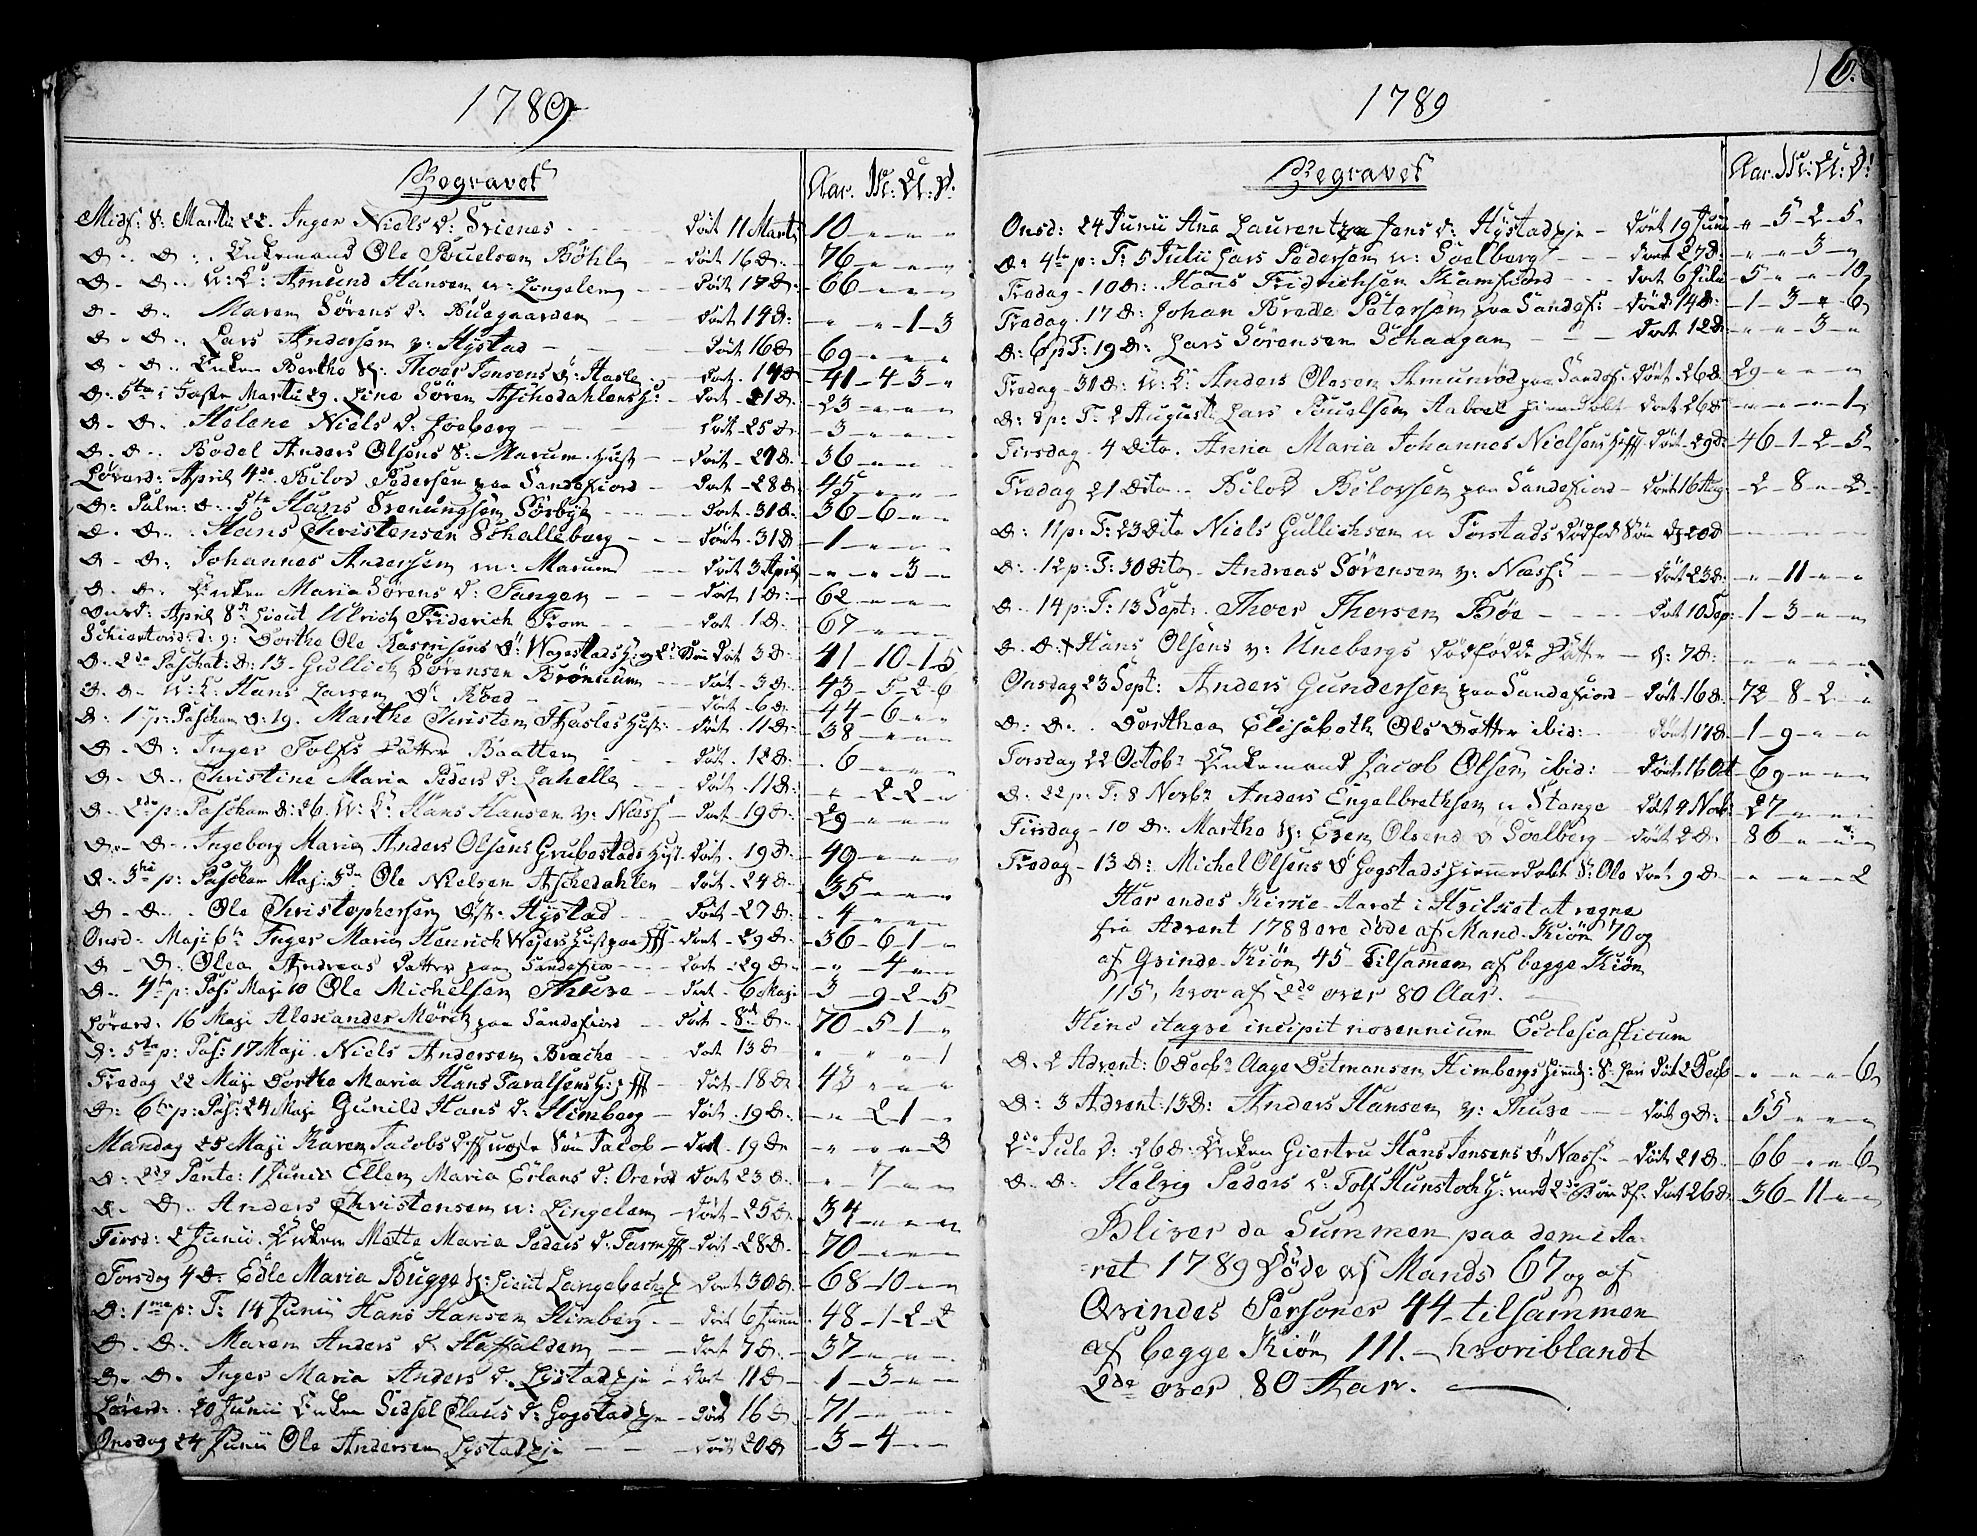 1789
Begravet
Aar. M: U: D:
Midf: S: Martii 22. Inger Niels D: Srienes - Døt 11 Marti 10
D. D. Enkemand Ole Pouelsen Böhle - Døt 16 D: 76
D. D. U: K: Amund Hansen v: Lingelem - Døt 17 D: 66
D. D. Maren Sörens D: Buegaarden - Døt 19 D: 1-3
D. D. Lars Andersen v: Hystad - Døt 16 D: 69
D. D. Enken Berthe Thoer Jensens Hasle - Døt 14 D 41-4-3
D: 5te i Faste Martii 29. Line Sören Aschedahlens H: - Døt 21 D: 23
D. D. Helene Niels D: Joeberg - Døt 25 D: 3
D. D. Bodel Anders Olsens S: Marum Hust - Døt 27 D: 36
Löverd: April 4de Bilov Pedersen paa Sandefiord - Døt 28 D: 45
D: Palm: D: 5te Hans Svenungsen Sörbye - Døt 31 D: 36-6
D. D. Hans Christensen Schalleberg - Døt 31 D 1
D. D. Johannes Andersen v: Marum - Døt 3 April 3
D. D. Enken Maria Sörens D: Tangen - Døt 1 D: 62
Onsd: April 8de Lieut Ulrich Friderich From - Døt 1 D: 67
Schiertorsd: 9: Dorthe Ole Rasmusens Wegestads H: Døt 3 D: 41-10-1-5
D. 2de Paschat: D: 13 Gullich Sörensen Brönium - Døt 3 D: 43-5-2-6
D. D. U: K: Hans Larsen Döt 6 D: 44-6
D: 1 p: Pascham D: 19. Marthe Christen Hasles Hust: - Døt 11 D: 38
D. D: Inger Tolfs Datter Baatten - Døt 12 D: 6
D. D. Christine Maria Peders D: Lahelle - Døt 11 D: 2-2
D. 2de p: Pascham D: 26. U: K: Hans Hansen v: Næss - Døt 19 D: 29
D. D. Ingeborg Maria Anders Olsens Grubestads Hust - Døt 19 D: 49
D. 3tie p: Pascham Maji 3de Ole Nielsen Aschedahlen - Døt 24 D: 35
D. D. Ole Christophersen Öst. Hystad - Døt 27 D: 4
Onsd: Maji 6te Inger Maria Henrich Weiers Hust paa - Døt 29 D: 36-6-1
D. D: Olea Andreas Datter paa Sandefior - Døt 29 D: 4
D. 4te p: Pas: Maji 10 Ole Michelsen Thuse - Døt 6 Maji 3-9-2-5
Löverd: 16 Maji Alexander Mörch paa Sandefiord - Døt 8de D: 70-5-1
D: 5te p: Pas: 17 Maji. Niels Andersen Brache - Døt 13 D 1
Fredag 22 Maji Dorthe Maria Hans Taralsens H: p - Døt 18 D: 43
D: 6te p: Pas: 24 Maji Gunild Hans D: Himberg - Døt 19 D: 2-1
Mandag 25 Maji Karen Jacobs D Sön Jacob - Døt 19 D 3
D: 2de Pente: 1 Junii Ellen Maria Erlans D: Oreröd Døt 23 D: 7
D. D. Anders Christensen v: Lingelem - Døt 25 D 34
Tirsd: 2 Junii. Enken Mette Maria Peders D: Farm - Døt 28 D: 70
Torsdag 4 D: Edle Maria Bugge Lieut Langebech - Døt 30 D 68-10
D: 1me p: T: 14 Junii Hans Hansen Himberg - Døt 6 Junii 48-1-2-2
D. D. Maren Anders D Haffalden - Døt 7 D: 37
D. D. Inger Maria Anders D. Lystad - Døt 11 D 1-3
Löverd: 20 Junii Enken Sidsel Claus D: Gogstad - Døt 16 D 71
Onsdag 24 Junii Ole Andersen Lystad - Døt 20 D 3-4
16.
1789
Begravet
Aar. M: U: D:
Onsd: 24 Junii Ana Laurentza Jens D: Hystad - Døt 19 Junii 5-2-5
D: 4te p: T: 5 Julii Lars Pedersen v: Soelberg - Døt 27 D: 3
Fredag 10 D: Hans Fridrichsen Kamfiord - Døt 6 Julii 5 10
Fredag 17 D: Johan Brede Petersen paa Sandef: - Döt 14 D: 1-3 6
D: 6 p T: 19 D: Lars Sörensen Schaagan - Døt 12 D: 3
Fredag 31 D: U: K: Anders Olesen Amunröd paa Sandef: Döt 26 D: 29
D: 8 p: T: 2 Augusti Lars Pouelsen Aaboel hiemdöbt Døt 26 D 1
Tirsdag 4 Dito. Anna Maria Johannes Nielsens H: Døt 29 D: 46-1-2-5
Fredag 21 Dito. Bilov Bilovsen paa Sandefiord - Døt 16 Aug: 2-8 2
D: 11 p: T: 23 Dito Niels Gullichsen v Torstads dödfød Sön D 20 D
D: 12 p: T: 30 Dito. Andreas Sörensen v: Næss: Døt 23 D: 11
D: 14 p: T: 13 Sept: Thoer Thorsen Böe - Døt 10 Sep: 1-3
D. D. Hans Olsens v: Unebergs dödfödde Datter - D: 7 D:
Onsdag 23 Sept: Anders Gundersen paa Sandefiord - Døt 16 D: 72-8-2
D: D. Dorthea Elisabeth Ols Datter ibid: Döt 17 D 1-9
Torsdag 22 Octobr Enkemand Jacob Olsen ibid: Døt 16 Oct 69
D. 22 p: T: 8 Novbr Anders Engelbrethsen v Stange Døt 4 Nob: 27
Tirsdag 10 D: Marthe Even Olsens Soelberg - Döt 2 D: 86
Fredag 13 D: Michel Olsens Gogstads hiemmedöbt S: Ole Døt 9 D 2
Her endes Kirke-Aaret i Hvilket at regne
fra Advent 1788 ere døde af Mand-Kiön 70 og
af Qvinde-Kiön 45 Tilsammen af begge Kiön
115, hvor af 2de over 80 Aar.
Hinc itaqve incipit novennium Ecclesiasticum
D. 2 Advent: 6 Decbr Aage Ditmansen Himbergs Döt 2 Decb 6
D: 3 Advent: 13 D: Anders Hansen v: Thuse - Døt 9 D: 55
2de Jule D: 26 D: Enken Giertru Hans Jensens Næss - Døt 21 D: 66 6
D. D: Helvig Peders D: Tolf Hunstoch H: med 2de Børn Døt 26 D: 36-11
Bliver da Summen paa dem i Aa-
ret 1789 Døde af Mands 67 og af
Qvindes Personer 44 tilsammen
af begge Kiön 111. - hvoriblandt
2de over 80 Aar.